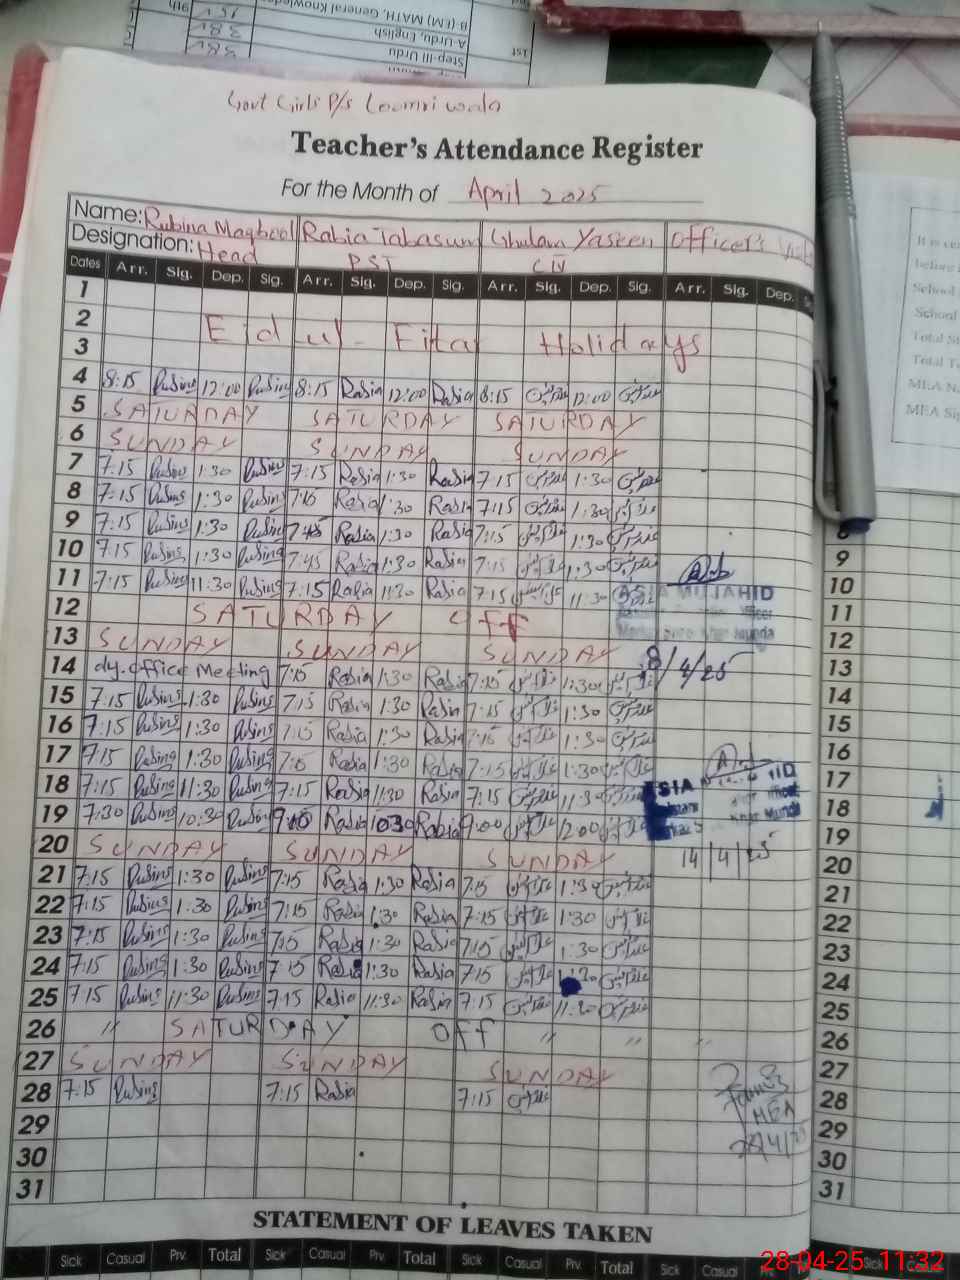 Step-III Urdu 38v
A-Urdu, English 38v
1st B-(EM) MATH, General Knowledge 9th
Govt Girls P/s Loamri wala
Teacher's Attendance Register
For the Month of April 2025
Name: Rubina Maqbool Rabia Tabasum Ghulam Yaseen Officer's
Designation: Head PST C IV
Dates Arr. Sig. Dep. Sig. Arr. Sig. Dep. Sig. Arr. Sig. Dep. Sig. Arr. Sig. Dep.
1
2 Eid ul-Fitar Holidays
3
4 8:15 Rubina 12:00 Rubina 8:15 Rabia 12:00 Rabia 8:15 12:00
5 SATURDAY SATURDAY SATURDAY
6 SUNDAY SUNDAY SUNDAY
7 7:15 Rubina 1:30 Rubina 7:15 Rabia 1:30 Rabia 7:15 1:30
8 7:15 Rubina 1:30 Rubina 7:15 Rabia 1:30 Rabia 7:15 1:30
9 7:15 Rubina 1:30 Rubina Rabia 1:30 Rabia 7:15 1:30
10 7:15 Rubina 1:30 Rubina 7:45 Rabia 1:30 Rabia 7:15 1:30
11 7:15 Rubina 11:30 Rubina 7:15 Rabia 11:30 Rabia 7:15 11:30 ASIA MUJAHID
12 SATURDAY off
13 SUNDAY SUNDAY SUNDAY 8/4/25
14 dy. office Meeting 7:15 Rabia 1:30 Rabia 7:15 1:30
15 7:15 Rubina 1:30 Rubina 7:15 Rabia 1:30 Rabia 7:15 1:30
16 7:15 Rubina 1:30 Rubina 7:15 Rabia 1:30 Rabia 7:15 1:30
17 7:15 Rubina 1:30 Rubina 7:15 Rabia 1:30 Rabia 7:15 1:30
18 7:15 Rubina 11:30 Rubina 7:15 Rabia 11:30 Rabia 7:15 11:30
19 7:30 Rubina 10:30 Rubina 9:00 Rabia 1030 Rabia 9:00 12:00
20 SUNDAY SUNDAY SUNDAY 14/4/25
21 7:15 Rubina 1:30 Rubina 7:15 Rabia 1:30 Rabia 7:15 1:30
22 7:15 Rubina 1:30 Rubina 7:15 Rabia 1:30 Rabia 7:15 1:30
23 7:15 Rubina 1:30 Rubina 7:15 Rabia 1:30 Rabia 7:15 1:30
24 7:15 Rubina 1:30 Rubina 7:15 Rabia 1:30 Rabia 7:15 1:30
25 7:15 Rubina 11:30 Rubina 7:15 Rabia 11:30 Rabia 7:15 11:30
26 〃 SATURDAY off 〃 〃 〃
27 SUNDAY SUNDAY SUNDAY
28 7:15 Rubina 7:15 Rabia 7:15
MEA
29 28/4/25
30
31
STATEMENT OF LEAVES TAKEN
Sick Casual Prv. Total Sick Casual Prv. Total Sick Casual Prv. Total Sick Casual
It is cer
before
School
School
Total St
Total Te
MEA Na
MEA Sig
8
9
10
11
12
13
14
15
16
17
18
19
20
21
22
23
24
25
26
27
28
29
30
31
Sick
28-04-25 11:32